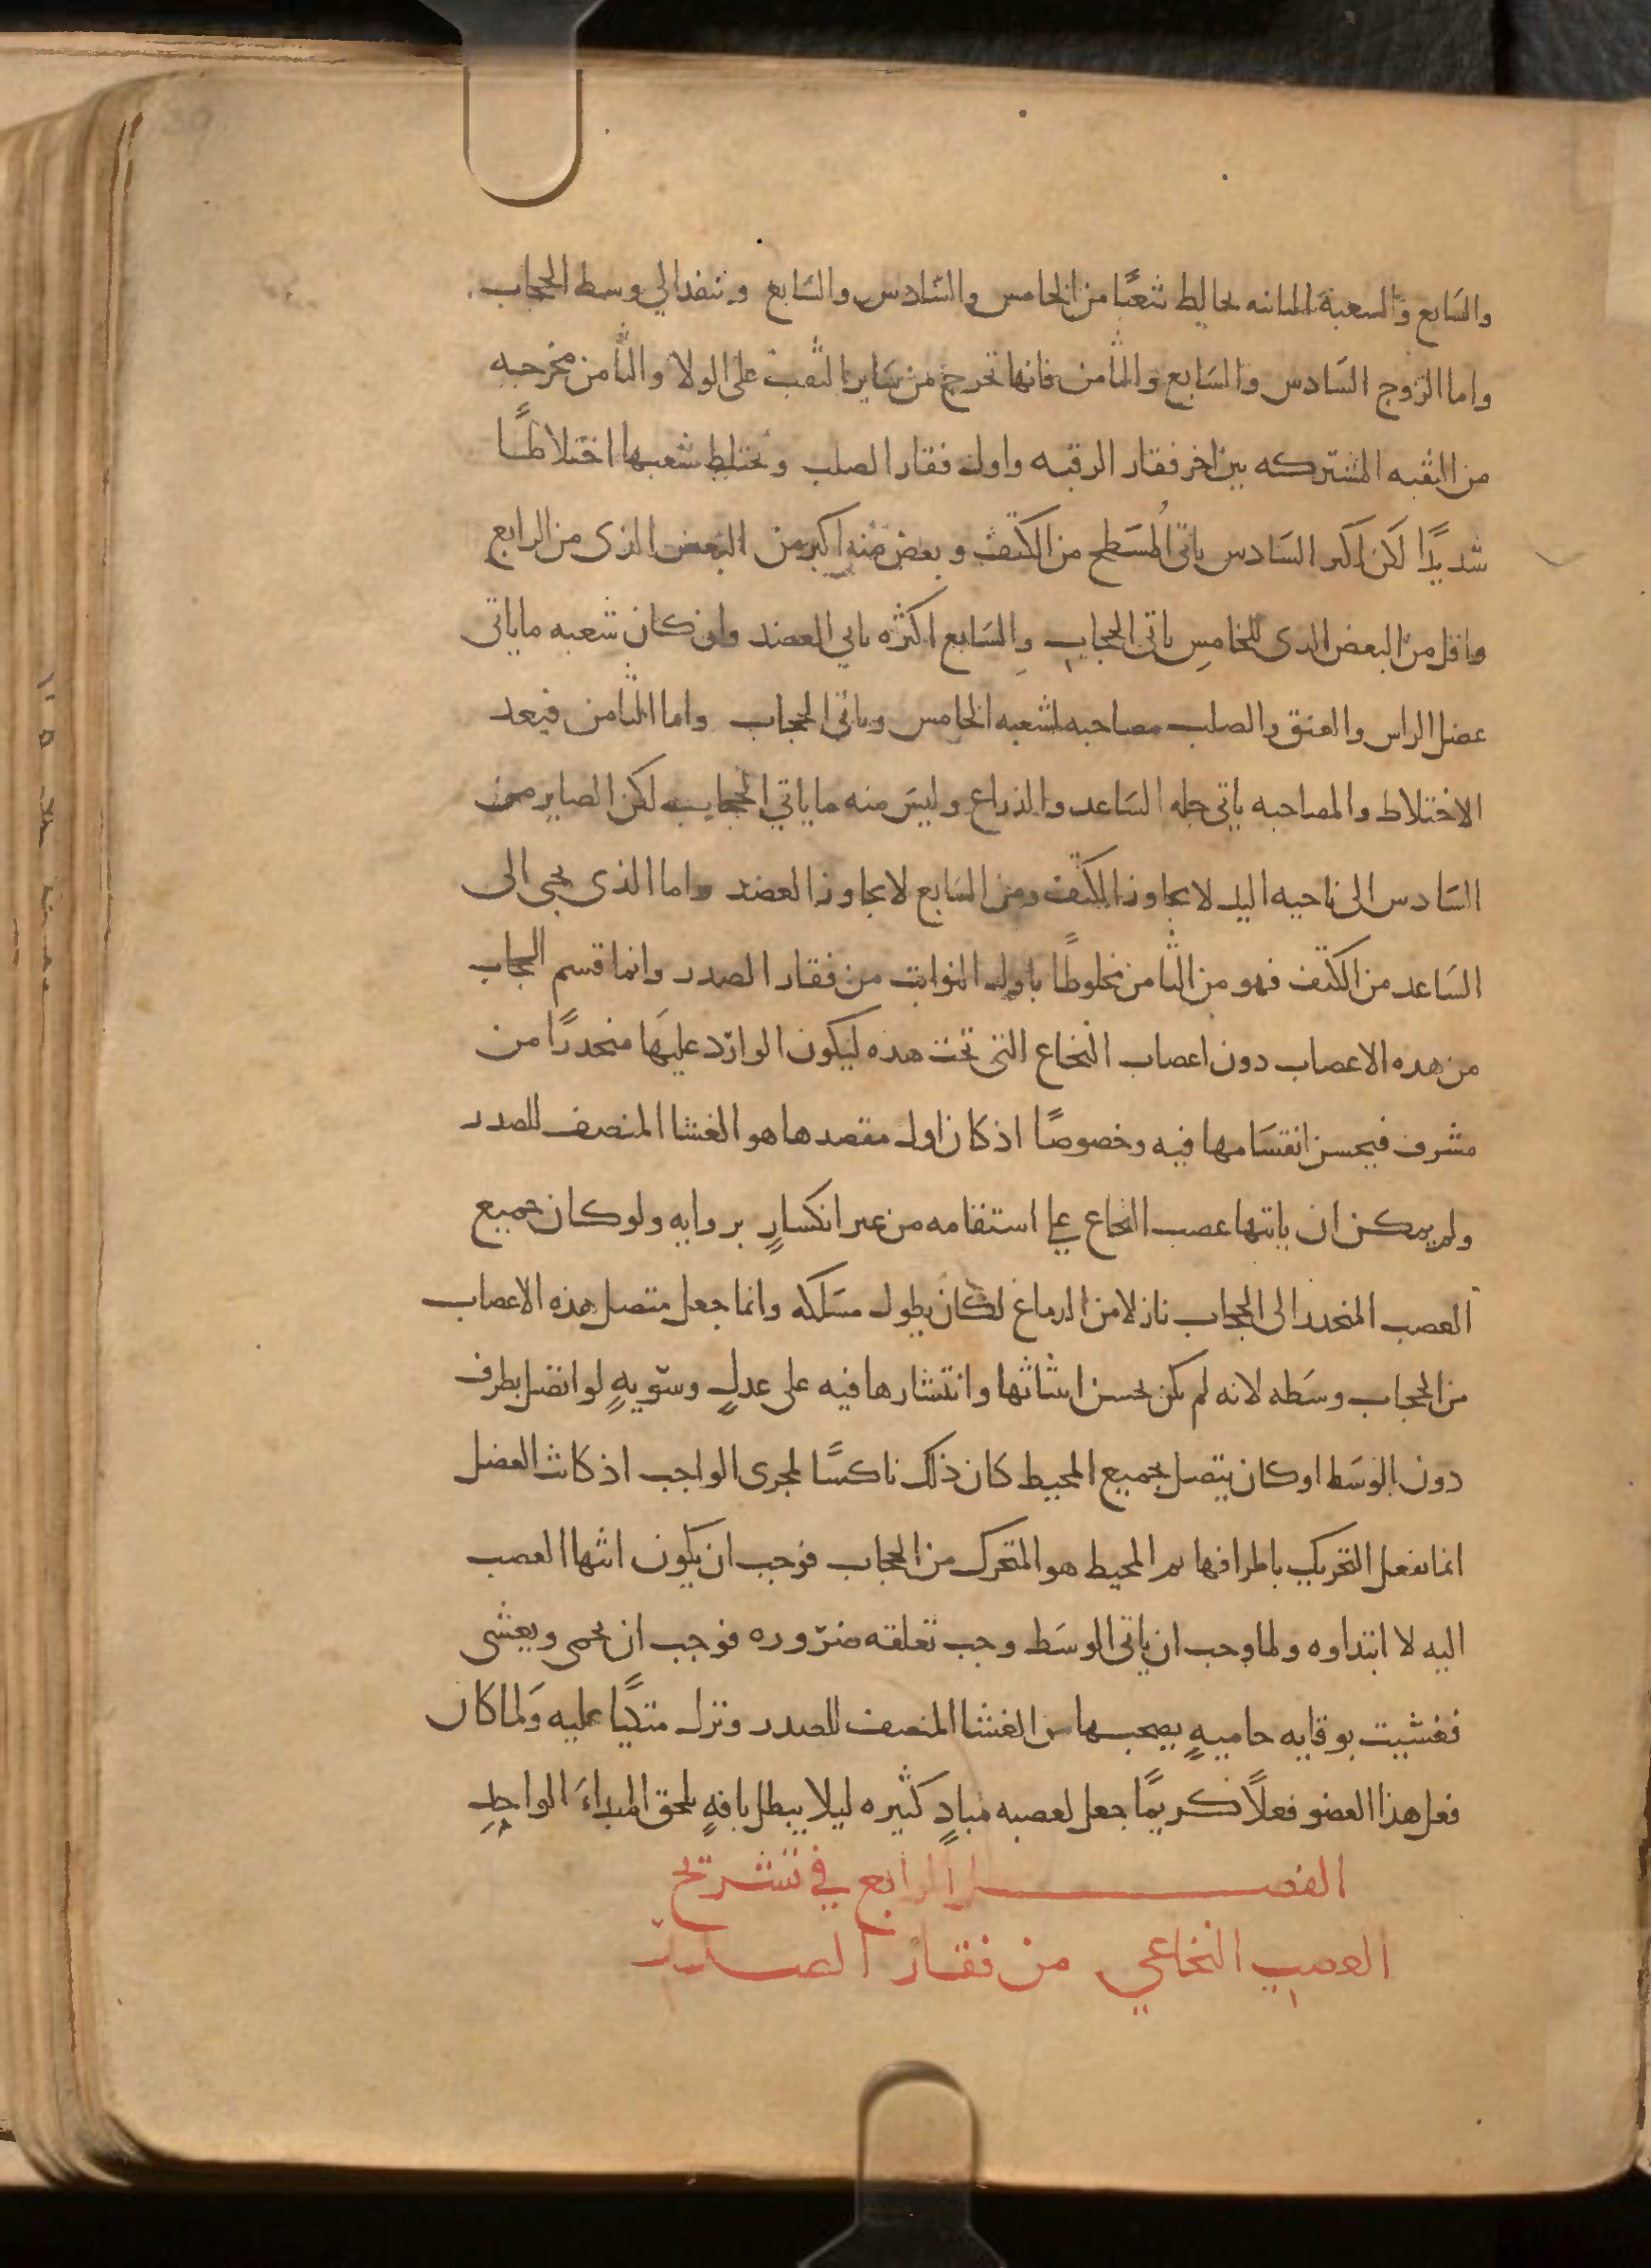 والسابع والشعبة الثانيه تخالط شعبًا من الخامس والسادس والسابع وتنفذ الي وسط الحجاب
واما الزوج السادس والسابع والثامن فانها تخرج من ساير الثقب على الولا والثامن مخرجه
من الثقبه المشتركه بين اخر فقار الرقبه واول فقار الصلب وتختلط شعبها اختلاطًا
شديدًا لكن اكبر السادس ياتي المسطح من الكتف وبعض منه اكبر من البعض الذى من الرابع
واقل من البعض الدى للخامس ياتي الحجاب والسابع اكثره ياتي العضد وان كان شعبه ما ياتى
عضل الراس والعنق والصلب مصاحبه لشعبه الخامس وياتي الحجاب واما الثامن فبعد
الاختلاط والمصاحبه ياتي جله الساعد والذراع وليس منه ما ياتي الحجاب لكن الصاير من
السادس الى ناحيه اليد لا يجاوز الكتف ومن السابع لا يجاوز العضد واما الذى يجي الى
الساعد من الكتف فهو من الثامن مخلوطًا باول النوابت من فقار الصدر وانما قسم الحجاب
من هده الاعصاب دون اعصاب النخاع التي تحت هده ليكون الوارد عليها منحدرًا من
مشرف فيحسن انقسامها فيه وخصوصًا اذ كان اول مقصدها هو الغشا المنصف للصدر
ولم يمكن ان ياتيها عصب النخاع علي استقامه من غير انكسارٍ بزوايه ولو كان جميع
العصب المنحدر الى الحجاب نازلا من الدماغ لكان يطول مسلكه وانما جعل متصل هذه الاعصاب
من الحجاب وسطه لانه لم يكن يحسن انبثاثها وانتشارها فيه على عدلٍ وسويهٍ لو اتصل بطرف
دون الوسط او كان يتصل بجميع المحيط كان ذلك ناكسًا لمجرى الواجب اذ كانت العضل
انما تفعل التحريك باطرافها ثم المحيط هو المتحرك من الحجاب فوجب ان يكون انتها العصب
اليه لا ابتداوه ولما وجب ان ياتي الوسط وجب تعلقه ضروره فوجب ان يحمى ويغشى
فغشيت بوقايه حاميهٍ يصحبها من الغشا المنصف للصدر وتزل متكيًا عليه ولما كان
فعل هذا العضو فعلاً كريمًا جعل لعصبه مبادٍ كثيره ليلا يبطل بافهٍ تلحق المبداءَ الواحدِ
الفصل الرابع في تشريح
العصب النخاعي من فقار الصدر